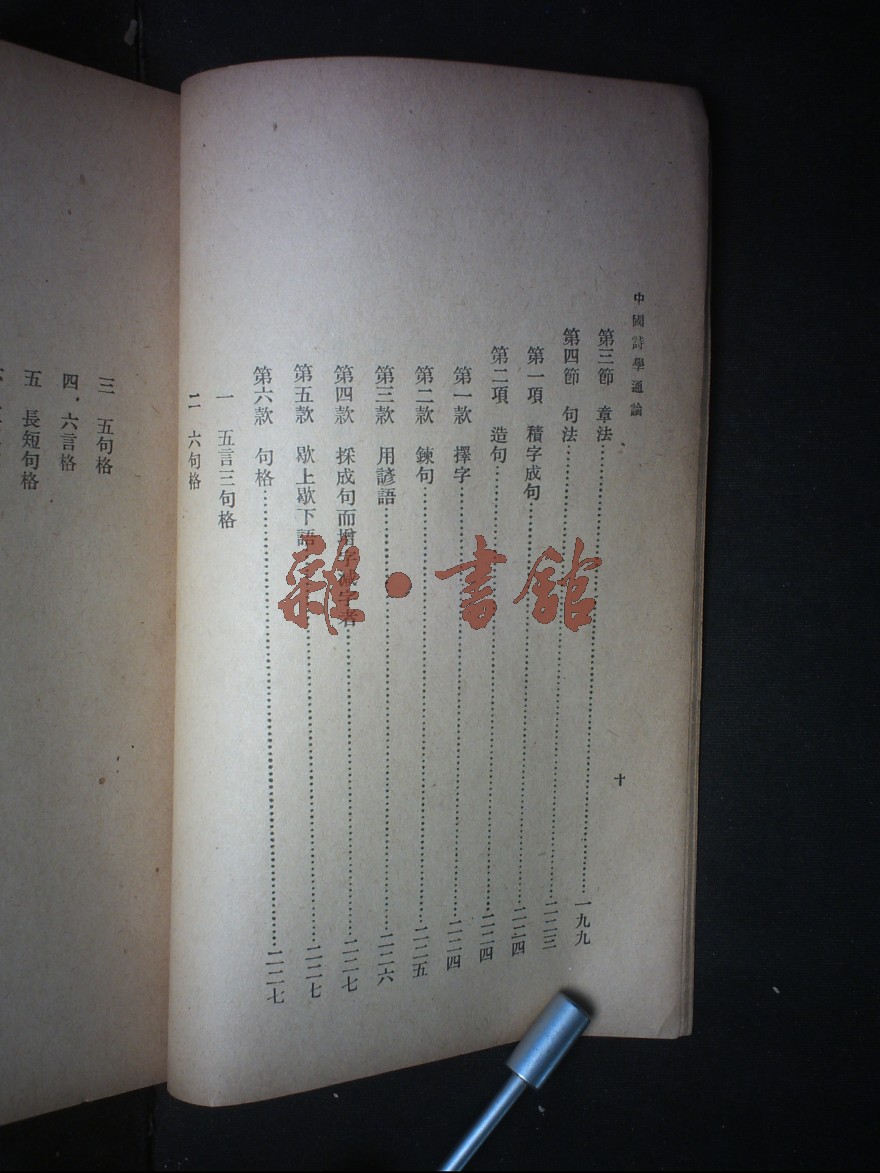 中國詩學通論
十
第三節 章法…………一九九
第四節 句法…………二二三
第一項 積字成句…………二二四
第二項 造句…………二二四
第一款 擇字…………二二四
第二款 鍊句…………二二五
第三款 用諺語…………二二六
第四款 採成句而增字減字者…………二二七
第五款 歇上歇下語…………二二七
第六款 句格…………二二七
一 五言三句格
二 六句格
三 五句格
四、六言格
五 長短句格
雜·書館